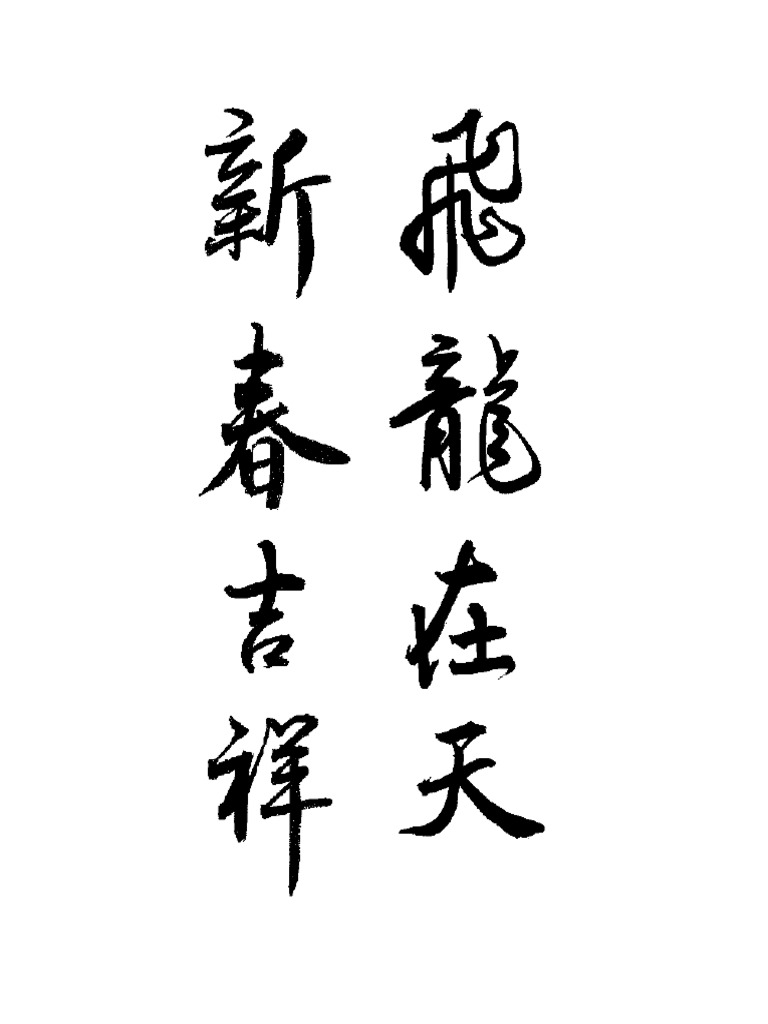 飛龍在天
新春吉祥